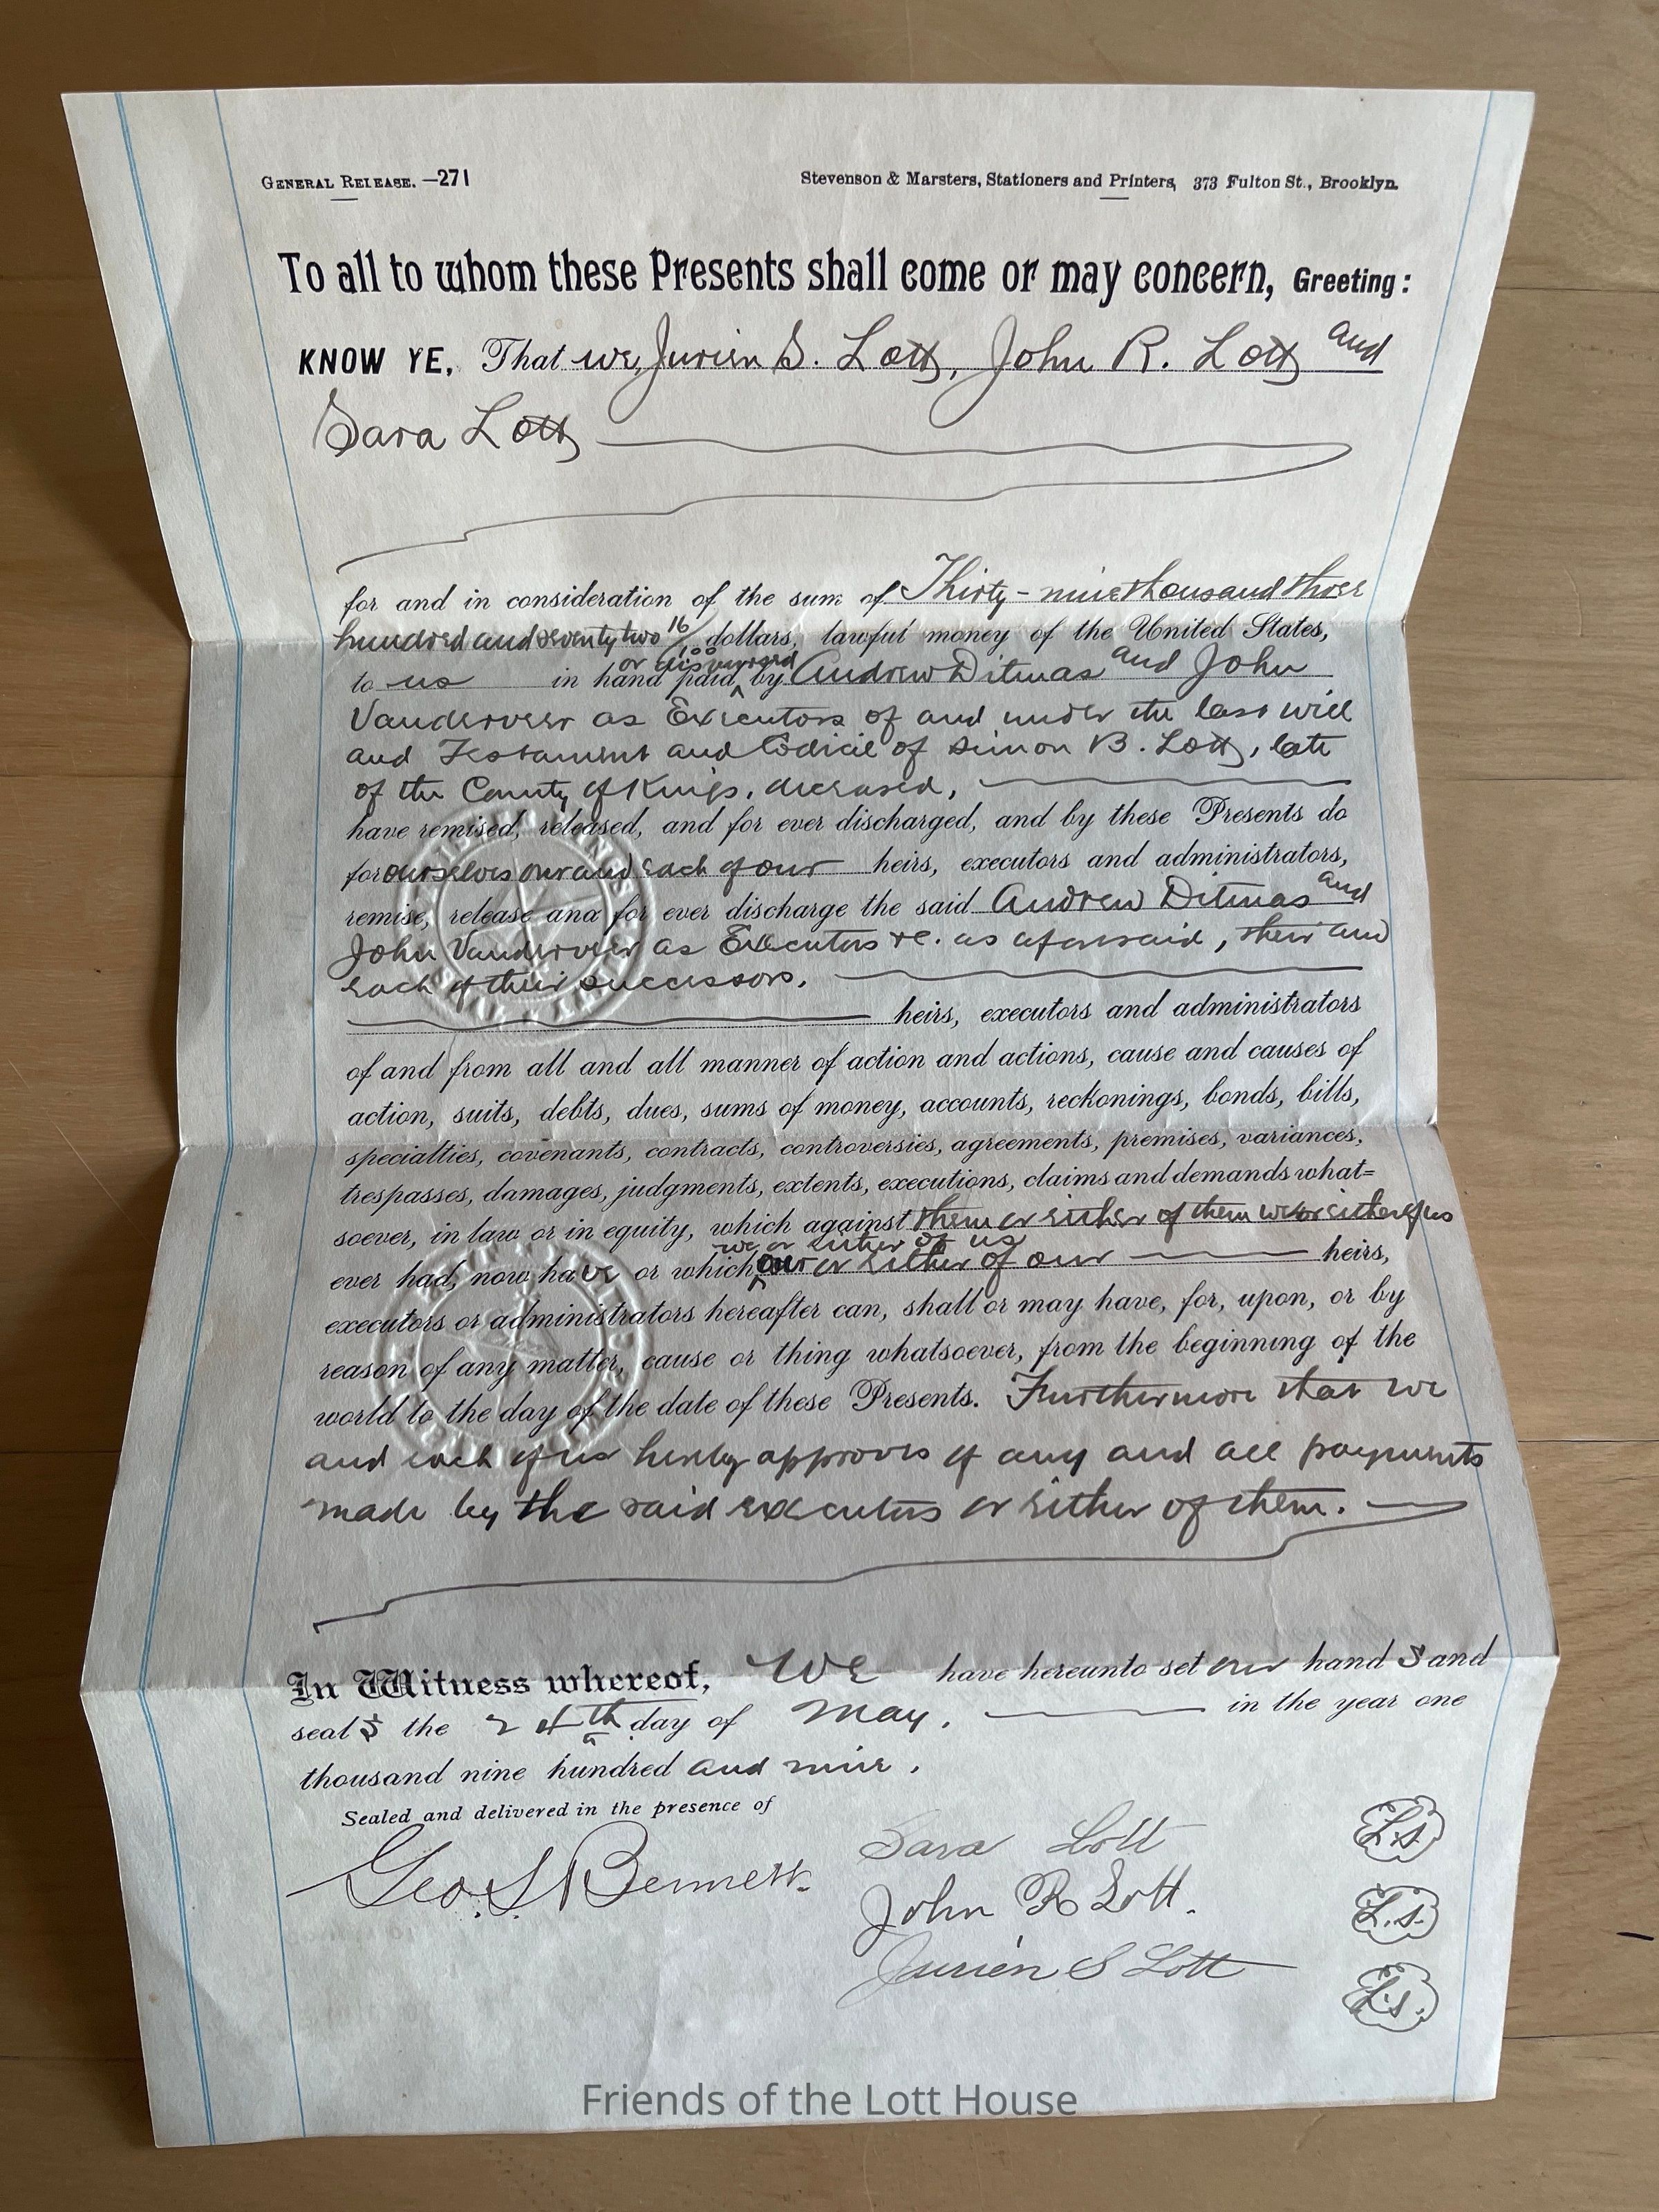 GENERAL RELEASE. —271
Stevenson & Marsters, Stationers and Printers, 373 Fulton St., Brooklyn.
To all to whom these Presents shall come or may concern, Greeting:
KNOW YE, That we, Jurien S. Lott, John R. Lott and
Sara Lott
for and in consideration of the sum of Thirty-nine thousand three
hundred and seventy two 16/100 dollars, lawful money of the United States,
or disbursed
to us in hand paid, by Andrew Ditmas and John
Vanderveer as Executors of and under the last will
and Testament and Codicil of Simon B. Lott, late
of the County of Kings, deceased,
have remised, released, and for ever discharged, and by these Presents do
for ourselves our and each of our heirs, executors and administrators,
remise, release and for ever discharge the said Andrew Ditmas and
John Vanderveer as Executors &c. as aforesaid, their and
each of their successors.
heirs, executors and administrators
of and from all and all manner of action and actions, cause and causes of
action, suits, debts, dues, sums of money, accounts, reckonings, bonds, bills,
specialties, covenants, contracts, controversies, agreements, premises, variances,
trespasses, damages, judgments, extents, executions, claims and demands what=
soever, in law or in equity, which against them or either of them we or either of us
we or either of us
ever had, now have or which our or either of our heirs,
executors or administrators hereafter can, shall or may have, for, upon, or by
reason of any matter, cause or thing whatsoever, from the beginning of the
world to the day of the date of these Presents. Furthermore that we
and each of us hereby approves of any and all payments
made by the said executors or either of them.
In Witness whereof, We have hereunto set our hands and
seals the 24th day of May, in the year one
thousand nine hundred and nine.
Sealed and delivered in the presence of
Geo. S. Bennett.
Sara Lott L.S.
John R Lott. L.S.
Jurien S Lott L.S.
Friends of the Lott House